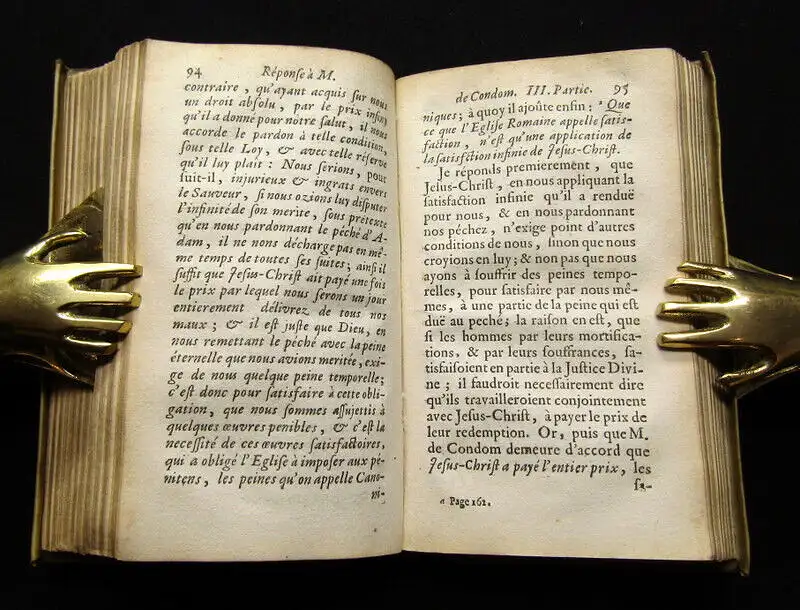 94 Réponſe à M.
contraire, qu'ayant acquis ſur nous
un droit abſolu, par le prix infiny
qu'il a donné pour nôtre ſalut, il nous
accorde le pardon à telle condition,
ſous telle Loy, & avec telle réſerve
qu'il luy plait: Nous ſerions, pour
ſuit-il, injurieux & ingrats envers
le Sauveur, ſi nous oZions luy diſputer
l'infinité de ſon merite, ſous prétexte
qu'en nous pardonnant le péché d'A-
dam, il ne nons décharge pas en mê-
me temps de toutes ſes ſuites; ainſi il
ſuffit que Jeſus-Chriſt ait payé une fois
le prix par lequel nous ſerons un jour
entierement délivrez de tous nos
maux; & il eſt juſte que Dieu, en
nous remettant le péché avec la peine
éternelle que nous avions meritée, exi-
ge de nous quelque peine temporelle;
c'eſt donc pour ſatisfaire à cette obli-
gation, que nous ſommes aſſujettis à
quelques œuvres penibles, & c'eſt la
neceſſité de ces œuvres ſatisfactoires,
qui a obligé l'Egliſe à impoſer aux pé-
nitens, les peines qu'on appelle Cano-
ni-
de Condom. III. Partie. 95
niques; à quoy il ajoûte enfin: ª Que
ce que l'Egliſe Romaine appelle ſatis-
faction, n'eſt qu'une application de
la ſatisfction infinie de Jeſus-Chriſt.
Je répons premierement, que
Jeſus-Chriſt, en nous appliquant la
ſatisfaction infinie qu'il a renduë
pour nous, & en nous pardonnant
nos péchez, n'exige point d'autres
conditions de nous, ſinon que nous
croyions en luy; & non pas que nous
ayons à ſouffrir des peines tempo-
relles, pour ſatisfaire par nous mê-
mes, à une partie de la peine qui eſt
duë au peché; la raison en eſt, que
ſi les hommes par leurs mortifica-
tions, & par leurs ſouffrances, ſa-
tisfaiſoient en partie à la Juſtice Divi-
ne; il faudroit neceſſairement dire
qu'ils travailleroient conjointement
avec Jeſus-Chriſt, à payer le prix de
leur redemption. Or, puis que M.
de Condom demeure d'accord que
Jeſus-Chriſt a payé l'entier prix, les
ſa-
ª Page 162.